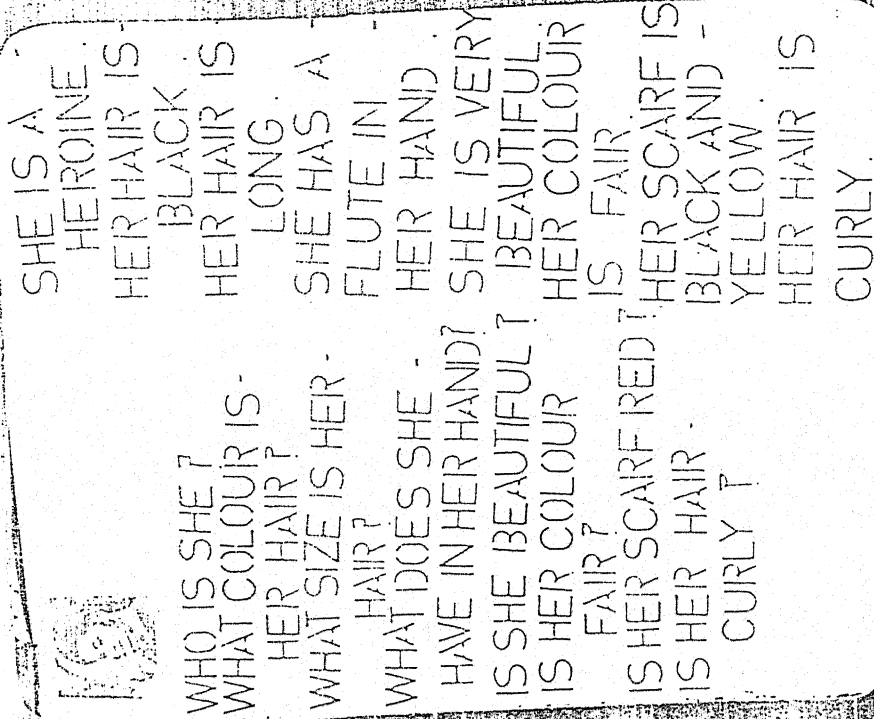 WHO IS SHE?
WHAT COLOUR IS-
HER HAIR?
WHAT SIZE IS HER-
HAIR?
WHAT DOES SHE -
HAVE IN HER HAND?
IS SHE BEAUTIFUL?
IS HER COLOUR
FAIR?
IS HER SCARF RED?
IS HER HAIR -
CURLY ?
SHE IS A -
HEROINE.
HER HAIR IS-
BLACK.
HER HAIR IS
LONG.
SHE HAS A -
FLUTE IN
HER HAND.
SHE IS VERY
BEAUTIFUL.
HER COLOUR
IS FAIR.
HER SCARF IS
BLACK AND -
YELLOW.
HER HAIR IS
CURLY.